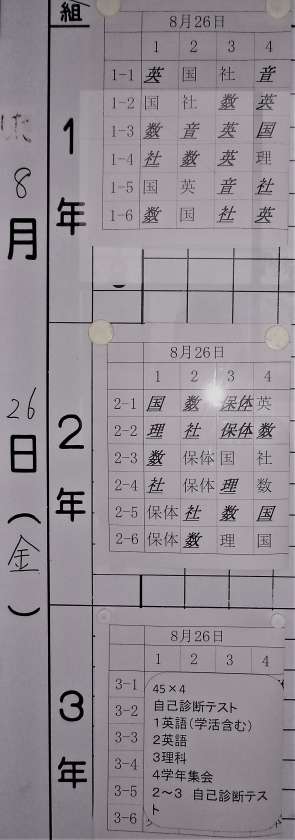 組
8月26日(金)
1年
8月26日
1 2 3 4
1-1 英 国 社 音
1-2 国 社 数 英
1-3 数 音 英 国
1-4 社 数 英 理
1-5 国 英 音 社
1-6 数 国 社 英
2年
8月26日
1 2 3 4
2-1 国 数 保体 英
2-2 理 社 保体 数
2-3 数 保体 国 社
2-4 社 保体 理 数
2-5 保体 社 数 国
2-6 保体 数 理 国
3年
8月26日
1 2 3 4
3-1
3-2
3-3
3-4
3-5
3-6
45×4
自己診断テスト
1英語(学活含む)
2英語
3理科
4学年集会
2〜3 自己診断テス
ト